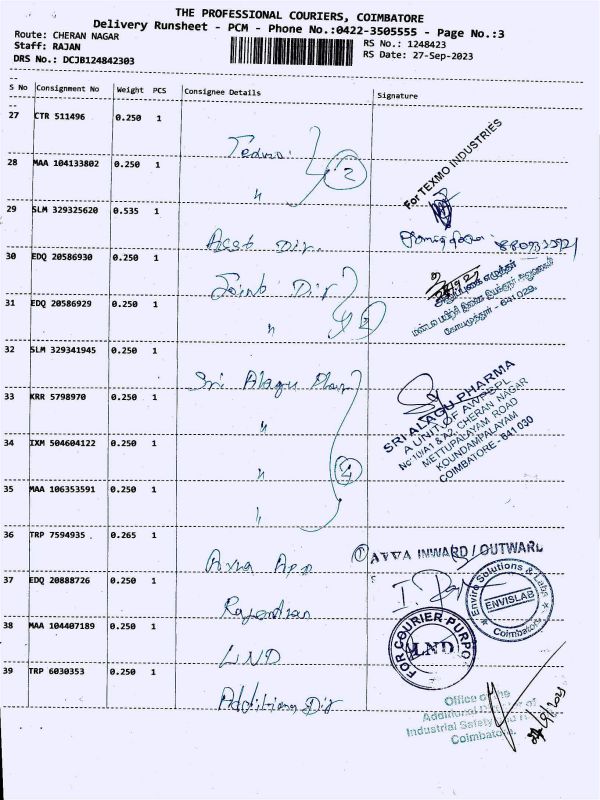 THE PROFESSIONAL COURIERS, COIMBATORE
Delivery Runsheet - PCM - Phone No.:0422-3505555 - Page No.:3
Route: CHERAN NAGAR
Staff: RAJAN
DRS No.: DCJB124842303
RS No.: 1248423
RS Date: 27-Sep-2023
S No Consignment No Weight PCS Consignee Details Signature
27 CTR 511496 0.250 1
28 MAA 104133802 0.250 1 2
For TEXMO INDUSTRIES
29 SLM 329325620 0.535 1 Asst Dir.
30 EDQ 20586930 0.250 1 Joint Dir
31 EDQ 20586929 0.250 1 " 2
கோயமுத்தூர் - 641 029.
32 SLM 329341945 0.250 1 Sri Alagu Phar
33 KRR 5798970 0.250 1 "
34 IXM 504604122 0.250 1 " 4
35 MAA 106353591 0.250 1 "
SRI ALAGU PHARMA
A UNIT OF AWPSPL
No:10/A1 & A2, CHERAN NAGAR
METTUPALAYAM ROAD
KOUNDAMPALAYAM
COIMBATORE - 641 030
36 TRP 7594935 0.265 1
1 AVVA INWARD / OUTWARD
37 EDQ 20888726 0.250 1 Rajendran
Enviro Solutions & Labs
ENVISLAB
Coimbatore
38 MAA 104407189 0.250 1 LND
FOR COURIER PURPO
LND
39 TRP 6030353 0.250 1 Additional Dir
Office of the
Additional of
Industrial Safety and
Coimbatore.